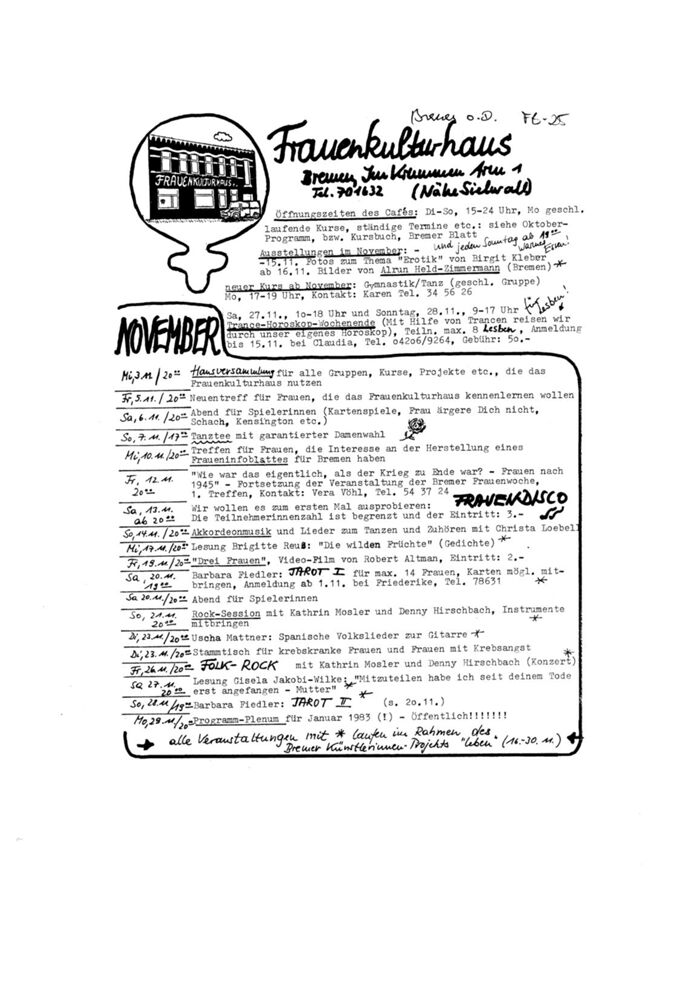 Bremen o.D. FE-25
Frauenkulturhaus
Bremen, Im Krummen Arm 1
Tel. 701632 (Nähe Sielwall)
FRAUENKULTURHAUS
Öffnungszeiten des Cafés: Di-So, 15-24 Uhr, Mo geschl.
laufende Kurse, ständige Termine etc.: siehe Oktober-
Programm, bzw. Kursbuch, Bremer Blatt
und jeden Sonntag ab 19⁰⁰
warmes Essen!
Ausstellungen im November: -
-15.11. Fotos zum Thema "Erotik" von Birgit Kleber
ab 16.11. Bilder von Alrun Held-Zimmermann (Bremen) *
neuer Kurs ab November: Gymnastik/Tanz (geschl. Gruppe)
Mo, 17-19 Uhr, Kontakt: Karen Tel. 34 56 26
für Lesben!
Sa, 27.11., 1o-18 Uhr und Sonntag, 28.11., 9-17 Uhr
Trance-Horoskop-Wochenende (Mit Hilfe von Trancen reisen wir
durch unser eigenes Horoskop), Teiln. max. 8 Lesben, Anmeldung
bis 15.11. bei Claudia, Tel. o42o6/9264, Gebühr: 5o.-
NOVEMBER
Mi, 3.11./20⁰⁰ Hausversammlung für alle Gruppen, Kurse, Projekte etc., die das
Frauenkulturhaus nutzen
Fr, 5.11./20⁰⁰ Neuentreff für Frauen, die das Frauenkulturhaus kennenlernen wollen
Sa, 6.11./20⁰⁰ Abend für Spielerinnen (Kartenspiele, Frau ärgere Dich nicht,
Schach, Kensington etc.)
So, 7.11./17⁰⁰ Tanztee mit garantierter Damenwahl
Mi, 10.11./20⁰⁰ Treffen für Frauen, die Interesse an der Herstellung eines
Fraueninfoblattes für Bremen haben
Fr, 12.11. 20⁰⁰ "Wie war das eigentlich, als der Krieg zu Ende war? - Frauen nach
1945" - Fortsetzung der Veranstaltung der Bremer Frauenwoche,
1. Treffen, Kontakt: Vera Vöhl, Tel. 54 37 24
FRAUENDISCO
Sa, 13.11. ab 20⁰⁰ Wir wollen es zum ersten Mal ausprobieren:
Die Teilnehmerinnenzahl ist begrenzt und der Eintritt: 3.-
So, 14.11./20⁰⁰ Akkordeonmusik und Lieder zum Tanzen und Zuhören mit Christa Loebell
Mi, 17.11./20⁰⁰ Lesung Brigitte Reuß: "Die wilden Früchte" (Gedichte) *
Fr, 19.11./20⁰⁰ "Drei Frauen", Video-Film von Robert Altman, Eintritt: 2.-
Sa, 20.11. 19⁰⁰ Barbara Fiedler: TAROT I für max. 14 Frauen, Karten mögl. mit-
bringen, Anmeldung ab 1.11. bei Friederike, Tel. 78631 *
Sa 20.11./20⁰⁰ Abend für Spielerinnen
So, 21.11. 20⁰⁰ Rock-Session mit Kathrin Mosler und Denny Hirschbach, Instrumente
mitbringen *
Di, 23.11./20⁰⁰ Uscha Mattner: Spanische Volkslieder zur Gitarre *
Di, 23.11./20⁰⁰ Stammtisch für krebskranke Frauen und Frauen mit Krebsangst
Fr, 26.11./20⁰⁰ FOLK-ROCK mit Kathrin Mosler und Denny Hirschbach (Konzert) *
Sa 27.11. 20⁰⁰ Lesung Gisela Jakobi-Wilke: "Mitzuteilen habe ich seit deinem Tode
erst angefangen - Mutter" *
So, 28.11./19⁰⁰ Barbara Fiedler: TAROT II * (s. 2o.11.)
Mo, 29.11./20⁰⁰ Programm-Plenum für Januar 1983 (!) - Öffentlich!!!!!!!
→ alle Veranstaltungen mit * laufen im Rahmen des
Bremer Künstlerinnen-Projekts "leben" (16.-30.11.) ←